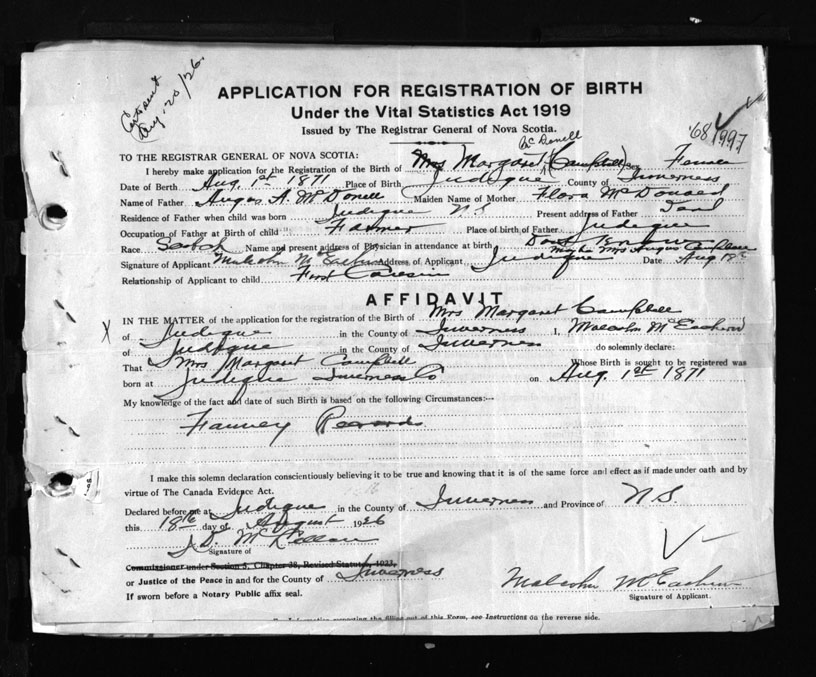 Cert sent
Aug. 20/26.
APPLICATION FOR REGISTRATION OF BIRTH
Under the Vital Statistics Act 1919
Issued by The Registrar General of Nova Scotia.
'68 1997
TO THE REGISTRAR GENERAL OF NOVA SCOTIA:
McDonell
I hereby make application for the Registration of the Birth of Mrs Margaret (Campbell) Sex Female
Date of Birth Aug. 1st 1871 Place of Birth Judique County of Inverness
Name of Father Angus A. McDonell Maiden Name of Mother Flora McDonald
Residence of Father when child was born Judique N S Present address of Father Dead
Occupation of Father at Birth of child Farmer Place of birth of Father Judique
Race Scotch Name and present address of Physician in attendance at birth Dont Know
maybe Mrs Angus
Signature of Applicant Malcolm McEachern Address of Applicant Judique Date Aug 18th
Relationship of Applicant to child First Cousin
AFFIDAVIT
IN THE MATTER of the application for the registration of the Birth of Mrs Margaret Campbell
X of Judique in the County of Inverness I, Malcolm McEachern
of Judique in the County of Inverness do solemnly declare:
That Mrs Margaret Campbell Whose Birth is sought to be registered was
born at Judique Inverness Co on Aug. 1st 1871
My knowledge of the fact and date of such Birth is based on the following Circumstances:—
Records
I make this solemn declaration conscientiously believing it to be true and knowing that it is of the same force and effect as if made under oath and by
virtue of The Canada Evidence Act.
Declared before me at Judique in the County of Inverness and Province of N S
this 18th day of August 1926
J. D. McLellan
Signature of
Commissioner under Section 5, Chapter 38, Revised Statutes, 1923,
or Justice of the Peace in and for the County of Inverness
If sworn before a Notary Public affix seal.
Malcolm McEachern
Signature of Applicant.
Information respecting the filling out of this Form, see Instructions on the reverse side.